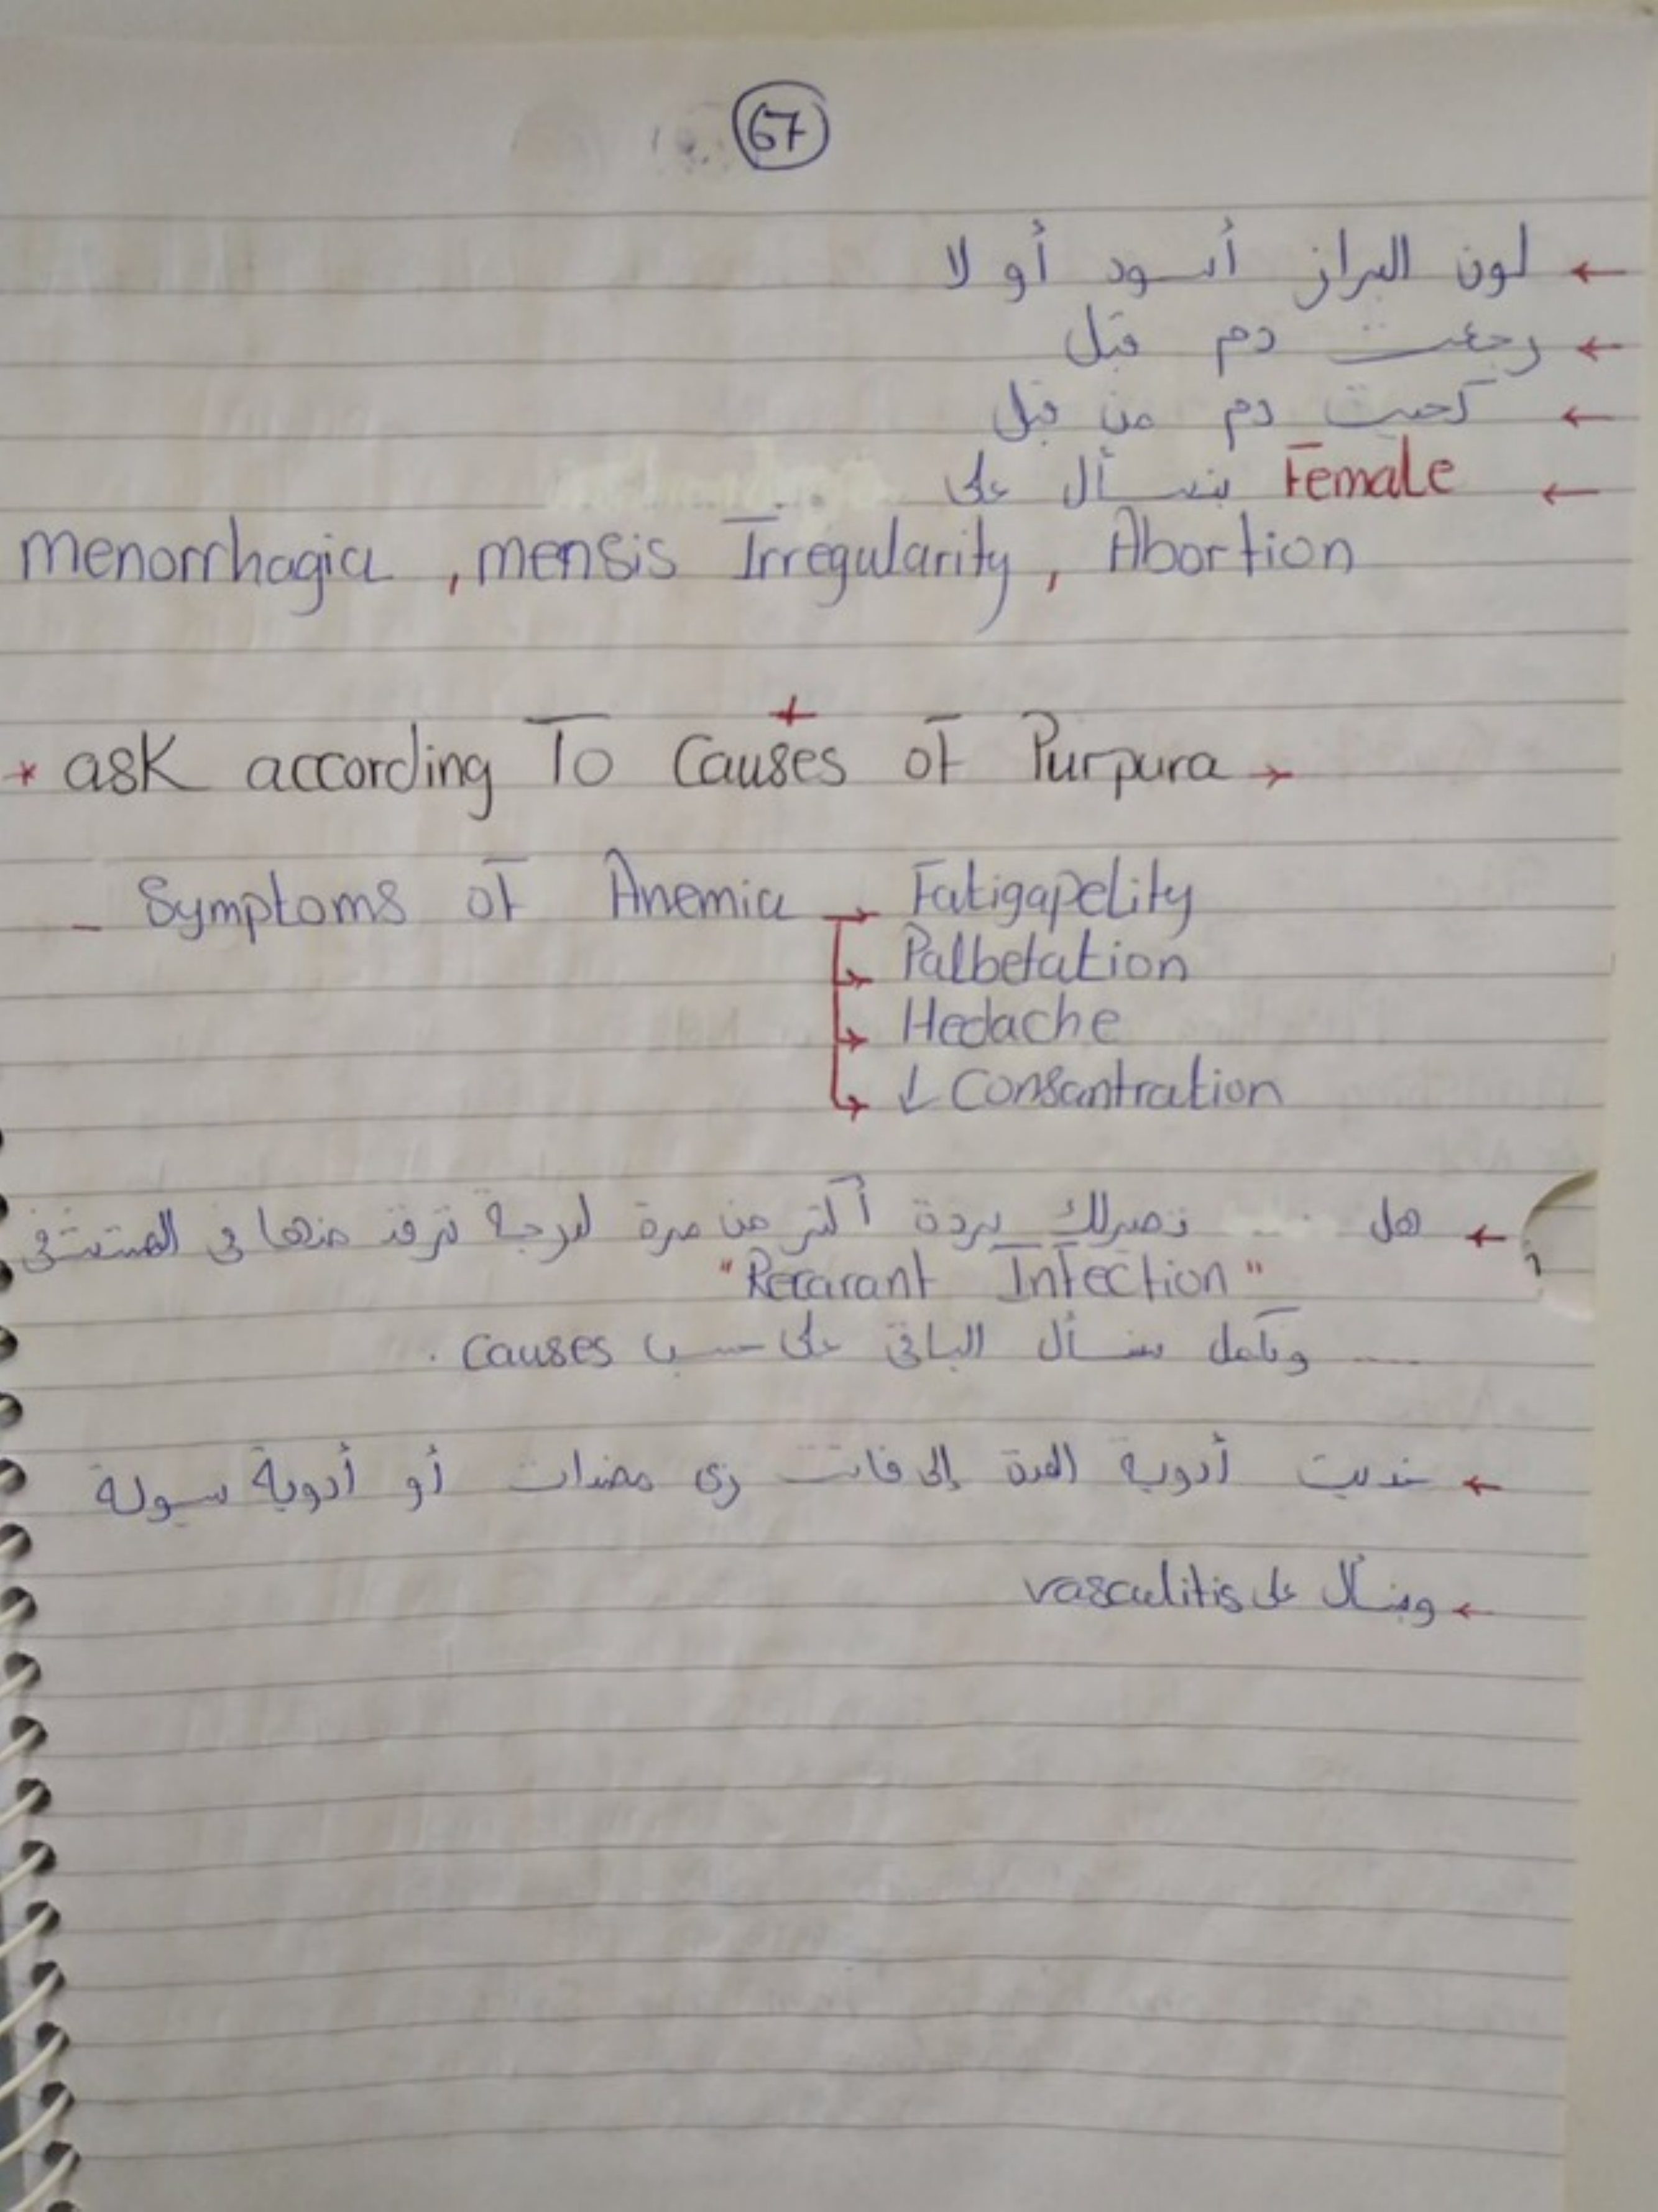 67
← لون البراز أسود أو لا
← رجعت دم قبل
← كحيت دم من قبل
← Female بنسأل على
menorrhagia , mensis Irregularity , Abortion
+
* ask according To Causes of Purpura →
- Symptoms of Anemia → Fatigapelity
→ Palbetation
→ Hedache
→ ↓ Consantration
← هل تصيرلك بردة أكثر من مرة لدرجة ترقد منها في المستشفى
"Recarant Infection"
.... ونكمل بنسأل الباقي على حسب causes .
← خديت أدوية المدة إلي فاتت زي مضدات أو أدوية سيولة
← وبنسأل على vasculitis